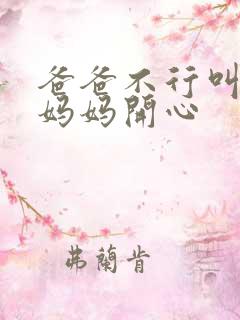 爸爸不行叫
妈妈開心
弗蘭肯